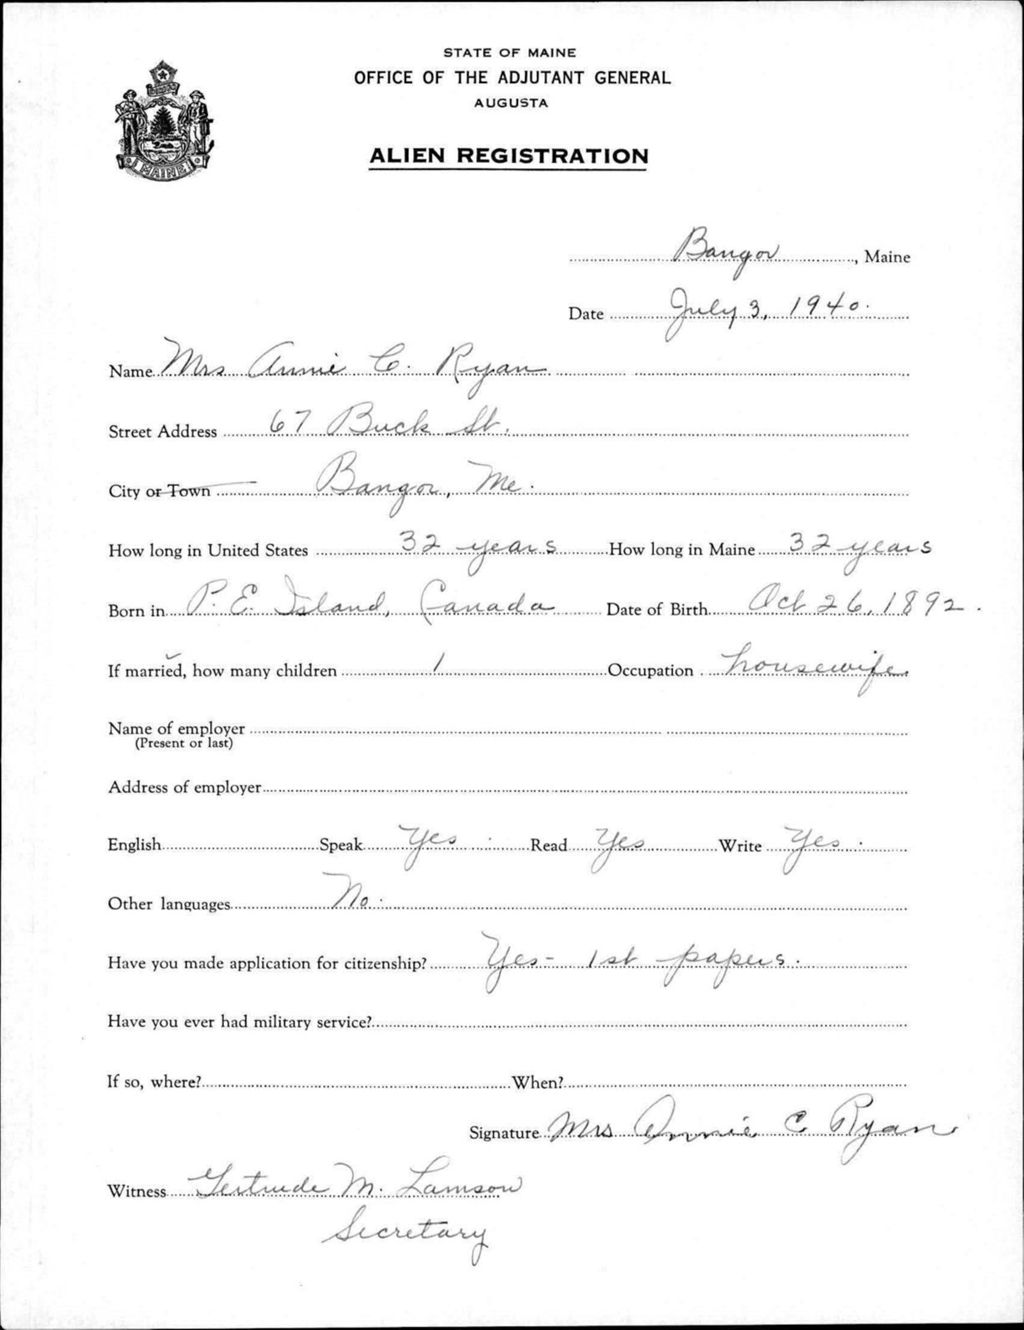 STATE OF MAINE
OFFICE OF THE ADJUTANT GENERAL
AUGUSTA
ALIEN REGISTRATION
MAINE
Bangor, Maine
Date July 3, 1940.
Name Mrs Annie C. Ryan
Street Address 67 Buck St.
City or Town Bangor, Me.
How long in United States 32 years How long in Maine 32 years
Born in P. E. Island, Canada Date of Birth Oct 26, 1892.
If married, how many children 1 Occupation housewife
Name of employer
(Present or last)
Address of employer
English Speak Yes Read Yes Write Yes.
Other languages No.
Have you made application for citizenship? Yes - 1st papers.
Have you ever had military service?
If so, where? When?
Signature Mrs Annie C Ryan
Witness Gertrude M. Lamson
Secretary